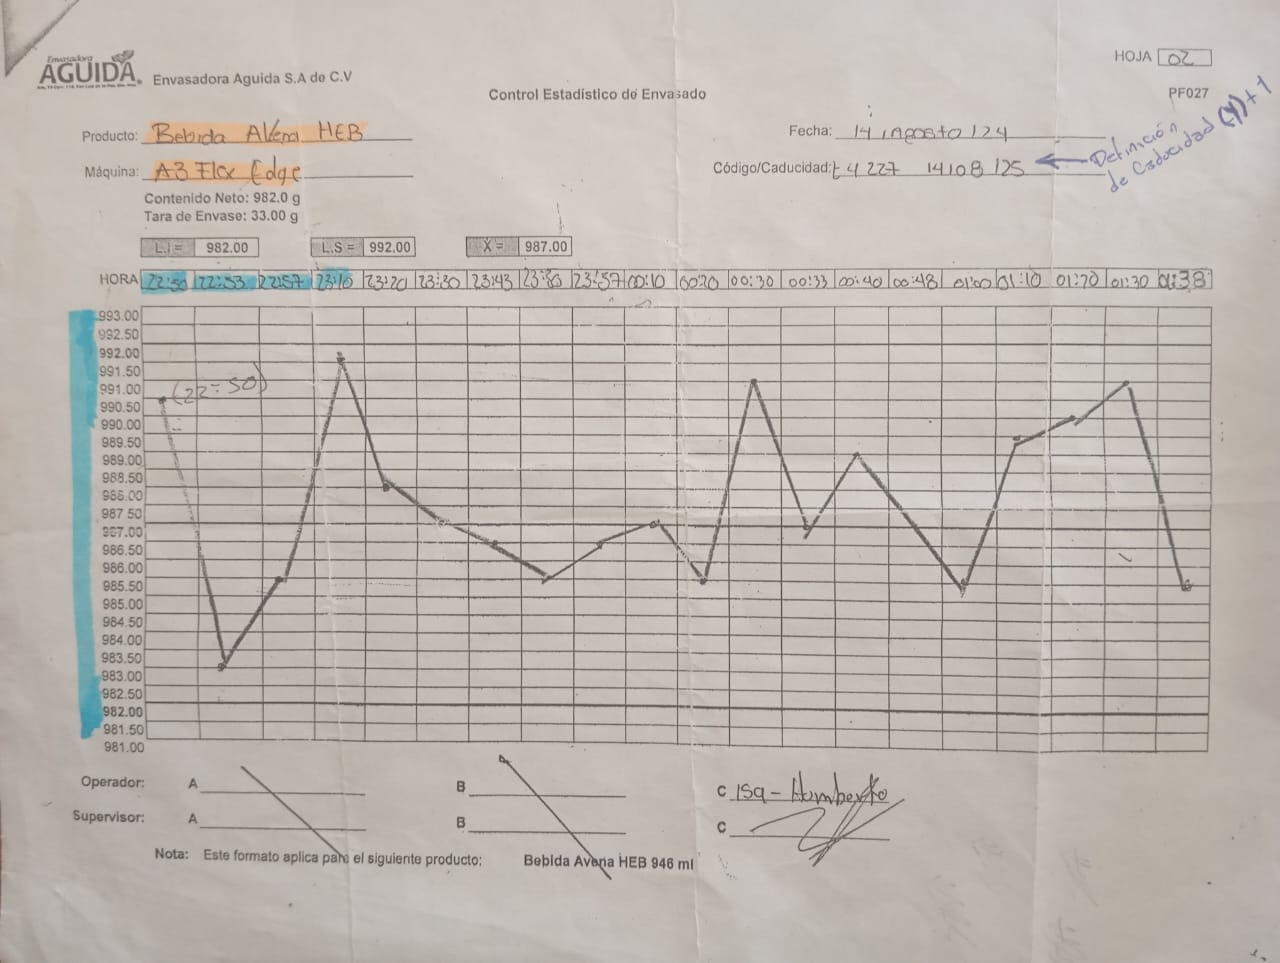 HOJA 02
Envasadora
AGUIDA® Envasadora Aguida S.A de C.V
Control Estadístico de Envasado
PF027
Producto: Bebida Avena HEB
Fecha: 14 Agosto 124
Máquina: A3 Flex Edge
Código/Caducidad: t 4 227 14108 125
Definición
de Caducidad (4)+1
Contenido Neto: 982.0 g
Tara de Envase: 33.00 g
L.I = 982.00 L.S = 992.00 X = 987.00
HORA 22:50 22:53 22:57 23:10 23:20 23:30 23:43 23:57 00:10 00:20 00:30 00:33 00:40 00:48 01:00 01:10 01:20 01:30 01:38
993.00
992.50
992.00
991.50
991.00
(22:50)
990.50
990.00
989.50
989.00
988.50
988.00
987.50
987.00
986.50
986.00
985.50
985.00
984.50
984.00
983.50
983.00
982.50
982.00
981.50
981.00
Operador: A B C Isa - Humberto
Supervisor: A B C
Nota: Este formato aplica para el siguiente producto: Bebida Avena HEB 946 ml